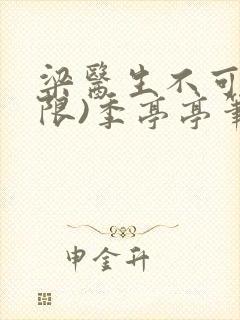 梁醫生不可
限)季亭亭筆
申金升